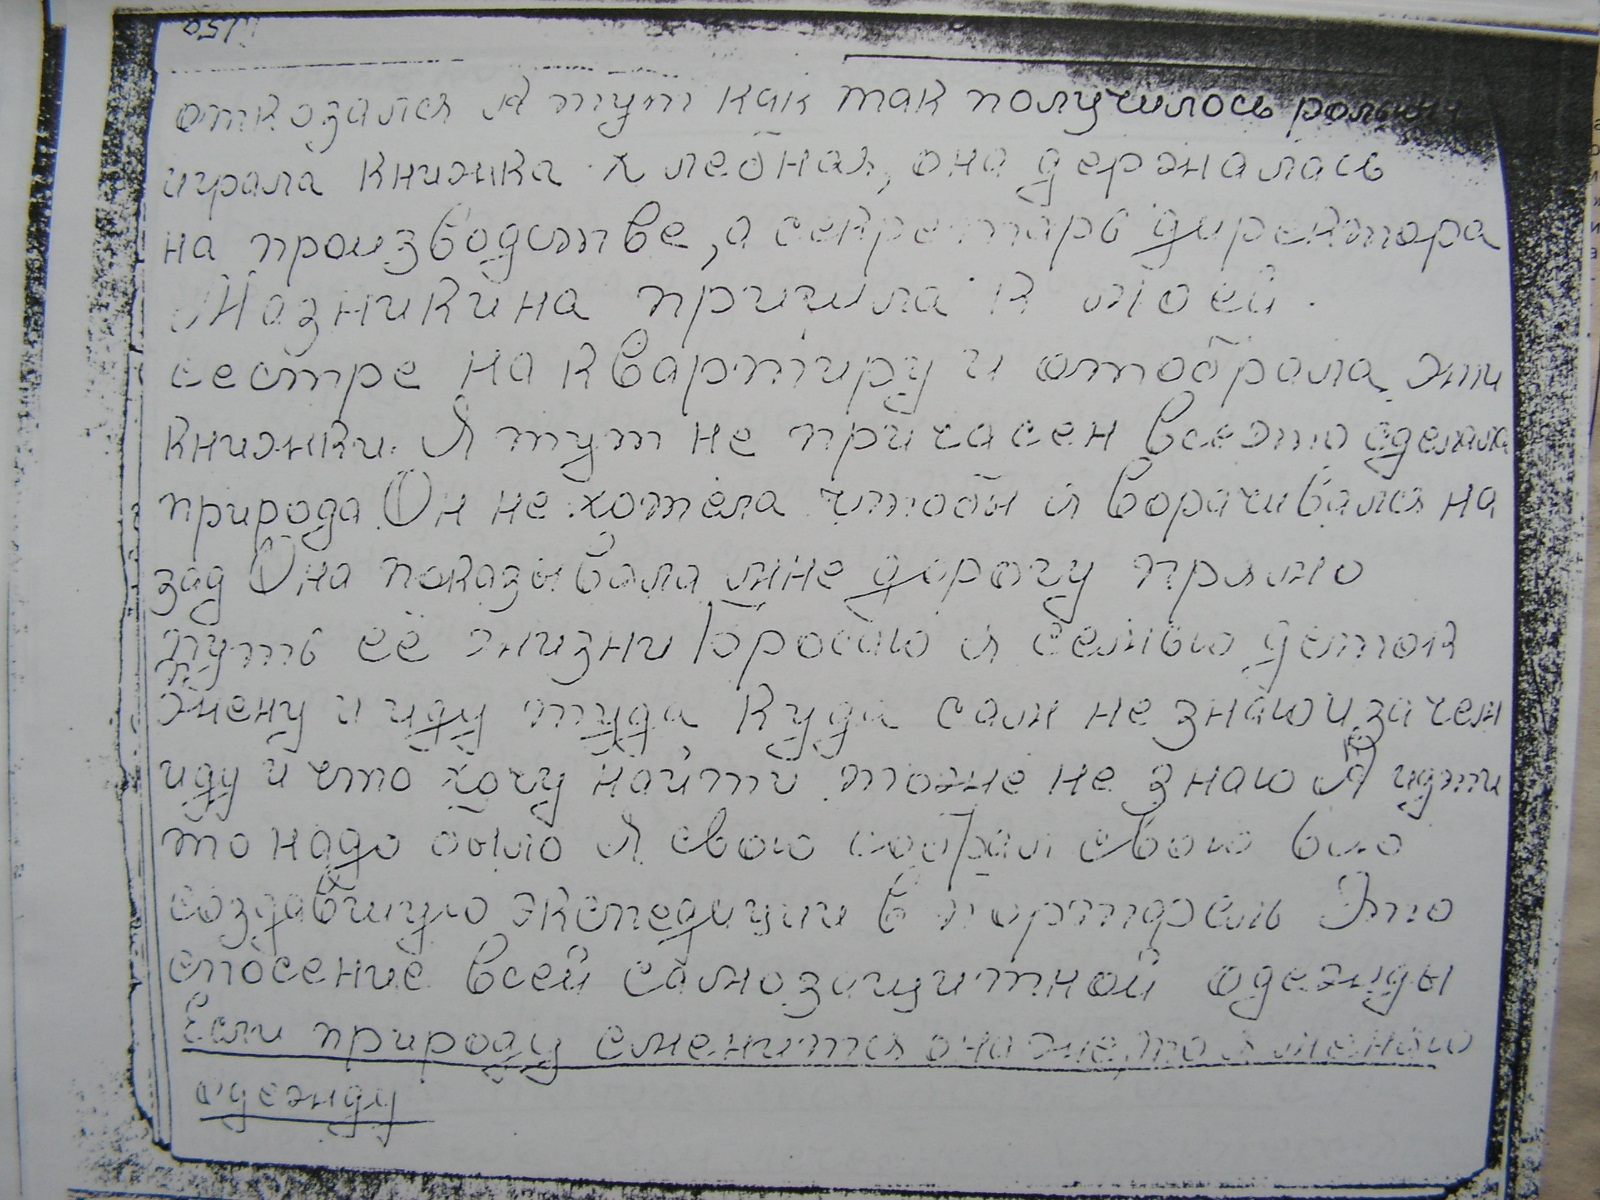 отказался А тут как так получилось роль
играла книжка хлебная, она держалась
на производстве, а секретарь директора
Мазникина пришла к моей
сестре на квартиру и отобрала эти
книжки. Я тут не причасен все это сделала
природа Он не хотела чтобы я ворачивался на
зад Она показывала мне дорогу прямо
путь её жизни Бросаю я семью деток
Жену и иду туда куда сам не знаю и зачем
иду и что хочу найти тоже не знаю А идти
то надо было Я свою собрал свою
создавшую экспедиции в портфель Это
спосение всей самозащитной одежды
Если природу сменится она же, то я меняю
одежду